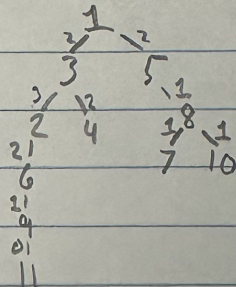 1
2 2
3 5
3 2 1
2 4 8
2 1 1
6 7 10
2
9
0
11